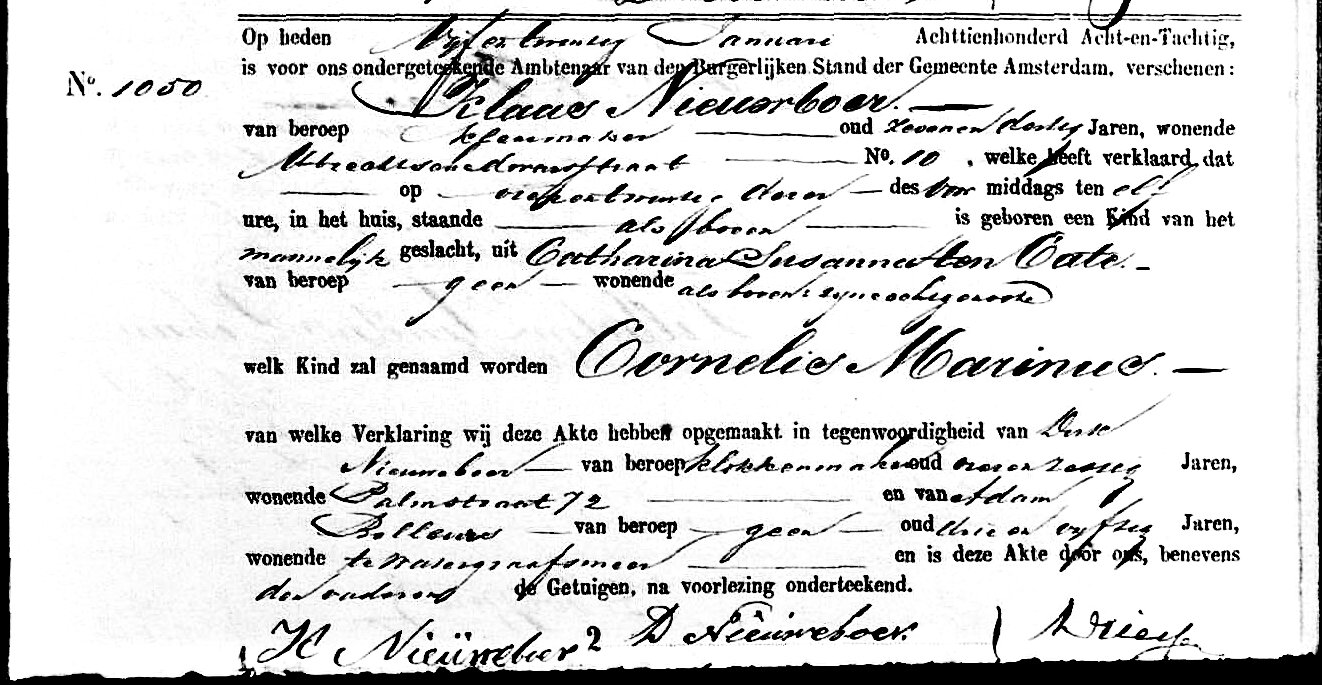 Op heden Vijf en twintig Januari Achttienhonderd Acht-en-Tachtig,
is voor ons ondergeteekende Ambtenaar van den Burgerlijken Stand der Gemeente Amsterdam, verschenen:
No. 1050
Klaas Nieuwboer.
van beroep oud zeven en dertig Jaren, wonende
No. 10, welke heeft verklaard dat
op dezer des voor middags ten elf
ure, in het huis, staande als boven is geboren een Kind van het
mannelijk geslacht, uit Catharina Susanna ten Cate.
van beroep geen wonende als boven: zijne echtgenoote
welk Kind zal genaamd worden Cornelis Marinus.
van welke Verklaring wij deze Akte hebben opgemaakt in tegenwoordigheid van
Nieuweboer van beroep klokkenmaker oud Jaren,
wonende Palmstraat 72 en van Adam
van beroep geen oud drie en vijftig Jaren,
wonende te Watergraafsmeer en is deze Akte door ons, benevens
de Getuigen, na voorlezing onderteekend.
K Nieuweboer D Nieuweboer